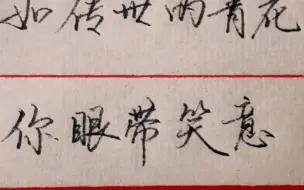 如传世的青花
你眼带笑意